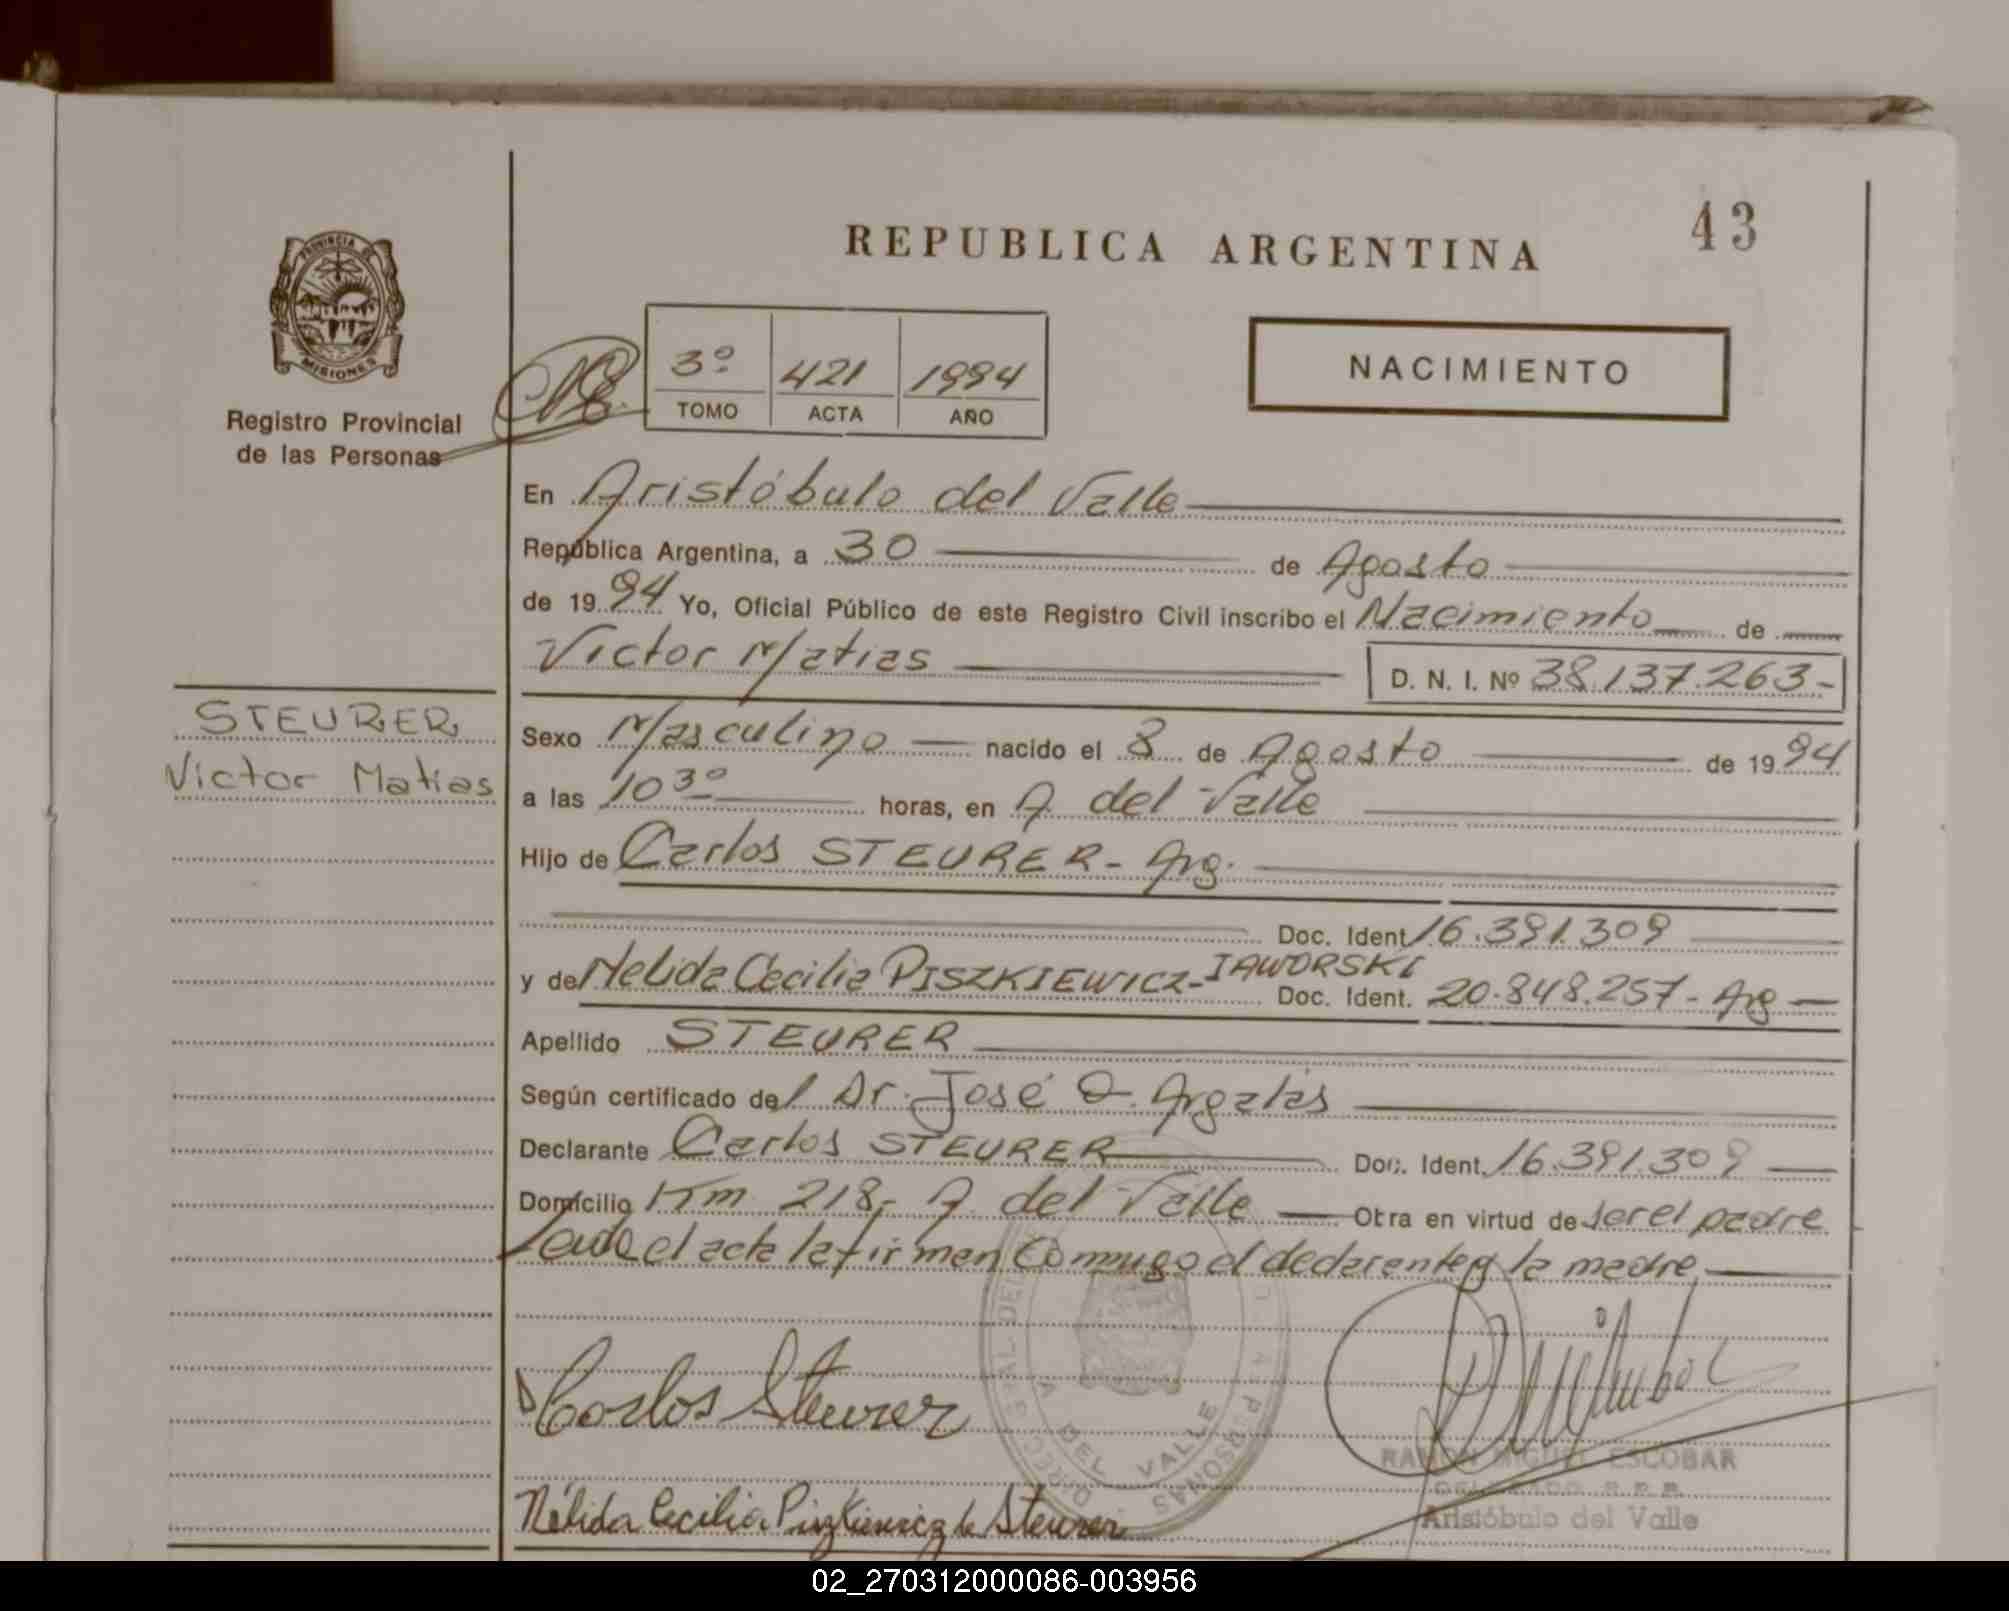 43
REPUBLICA ARGENTINA
PROVINCIA DE
MISIONES
Registro Provincial
de las Personas
3º 421 1994
TOMO ACTA AÑO
NACIMIENTO
En Aristóbulo del Valle
República Argentina, a 30 de Agosto
de 1994 Yo, Oficial Público de este Registro Civil inscribo el Nacimiento de
Victor Matias D. N. I. Nº 38.137.263-
STEURER
Victor Matias
Sexo Masculino nacido el 8 de Agosto de 1994
a las 10 30 horas, en A. del Valle
Hijo de Carlos STEURER - Arg.
Doc. Ident. 16.391.309
y de Nelida Cecilia PISZKIEWICZ - JAWORSKI
Doc. Ident. 20.848.257 - Arg
Apellido STEURER
Según certificado del Dr. José O. Argatas
Declarante Carlos STEURER Doc. Ident. 16.391.309
Domicilio Km 218, A. del Valle Otra en virtud de ser el padre
Leida el acta la firman Conmigo el declarante y la madre
Carlos Steurer
A DEL VALLE
RAMON MIGUEL ESCOBAR
DELEGADO R.P.P.
Aristóbulo del Valle
Nélida Cecilia Piszkiewicz de Steurer
02_270312000086-003956